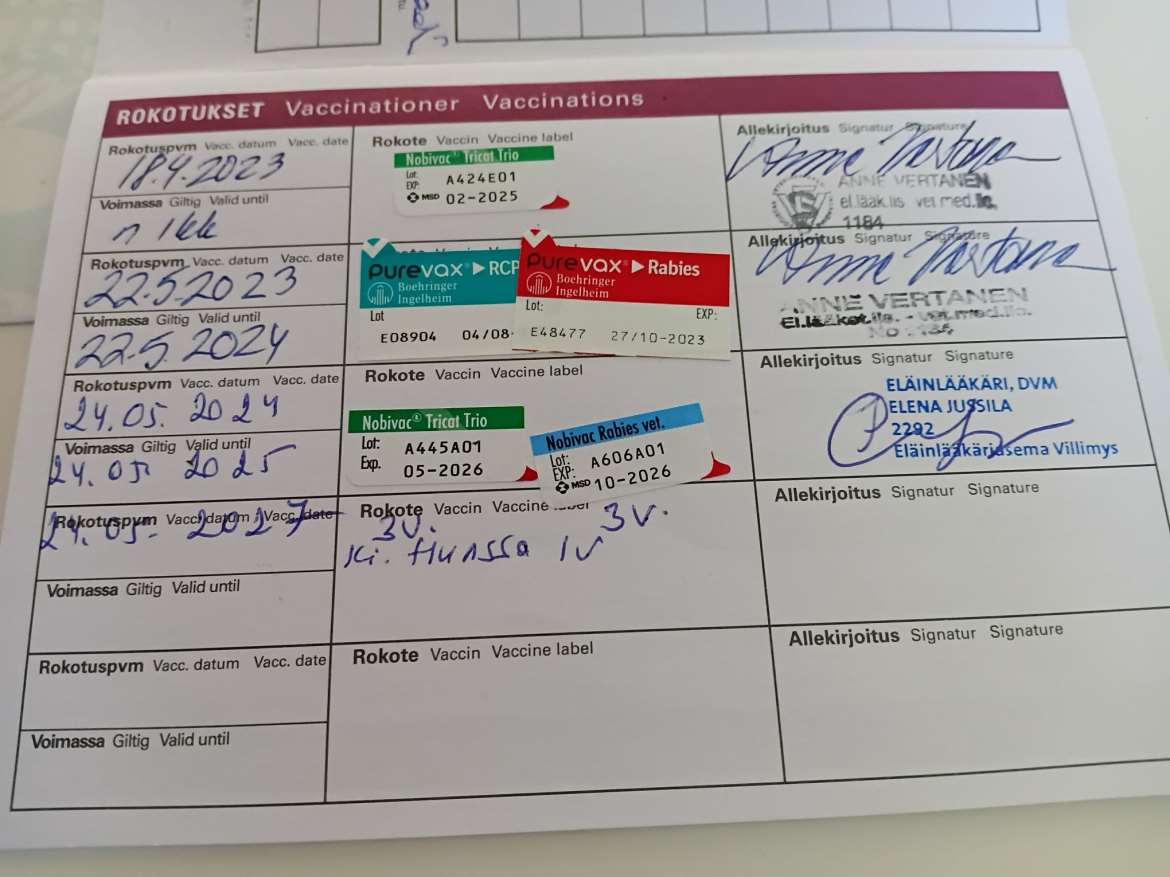 ROKOTUKSET Vaccinationer Vaccinations
Rokotuspvm Vacc. datum Vacc. date
18.4.2023
Voimassa Giltig Valid until
n 1kk
Rokote Vaccin Vaccine label
Nobivac® Tricat Trio
Lot: A424E01
EXP:
MSD 02-2025
Allekirjoitus Signatur Signature
ANNE VERTANEN
el.lääk.lis vet.med.lic.
1184
Rokotuspvm Vacc. datum Vacc. date
22.5.2023
Voimassa Giltig Valid until
22.5.2024
Purevax® RCP
Boehringer
Ingelheim
Lot
E08904 04/08-
Purevax® Rabies
Boehringer
Ingelheim
Lot: EXP:
E48477 27/10-2023
Allekirjoitus Signatur Signature
ANNE VERTANEN
El.lääket.lis. - vet.med.lic.
No 1184
Rokotuspvm Vacc. datum Vacc. date
24.05. 2024
Voimassa Giltig Valid until
24.05. 2025
Rokote Vaccin Vaccine label
Nobivac® Tricat Trio
Lot: A445A01
Exp. 05-2026
Nobivac Rabies vet.
Lot: A606A01
EXP:
MSD 10-2026
Allekirjoitus Signatur Signature
ELÄINLÄÄKÄRI, DVM
ELENA JUSSILA
2292
Eläinlääkäriasema Villimys
Rokotuspvm Vacc. datum Vacc. date
24.05. 2027
Voimassa Giltig Valid until
Rokote Vaccin Vaccine label
3v. 3v.
Ki. flunssa 1v
Allekirjoitus Signatur Signature
Rokotuspvm Vacc. datum Vacc. date
Voimassa Giltig Valid until
Rokote Vaccin Vaccine label
Allekirjoitus Signatur Signature